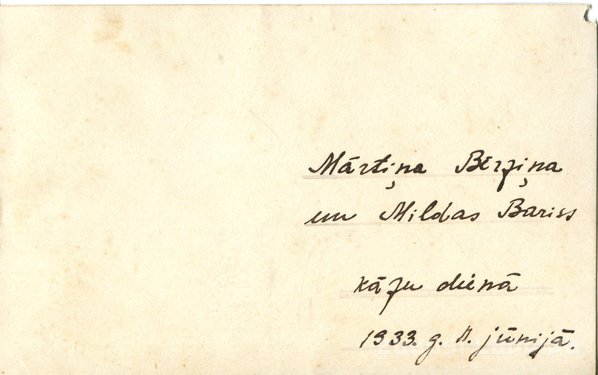 Mārtiņa Bērziņa
un Mildas Bariss
kāzu dienā
1933. g. 11. jūnijā.